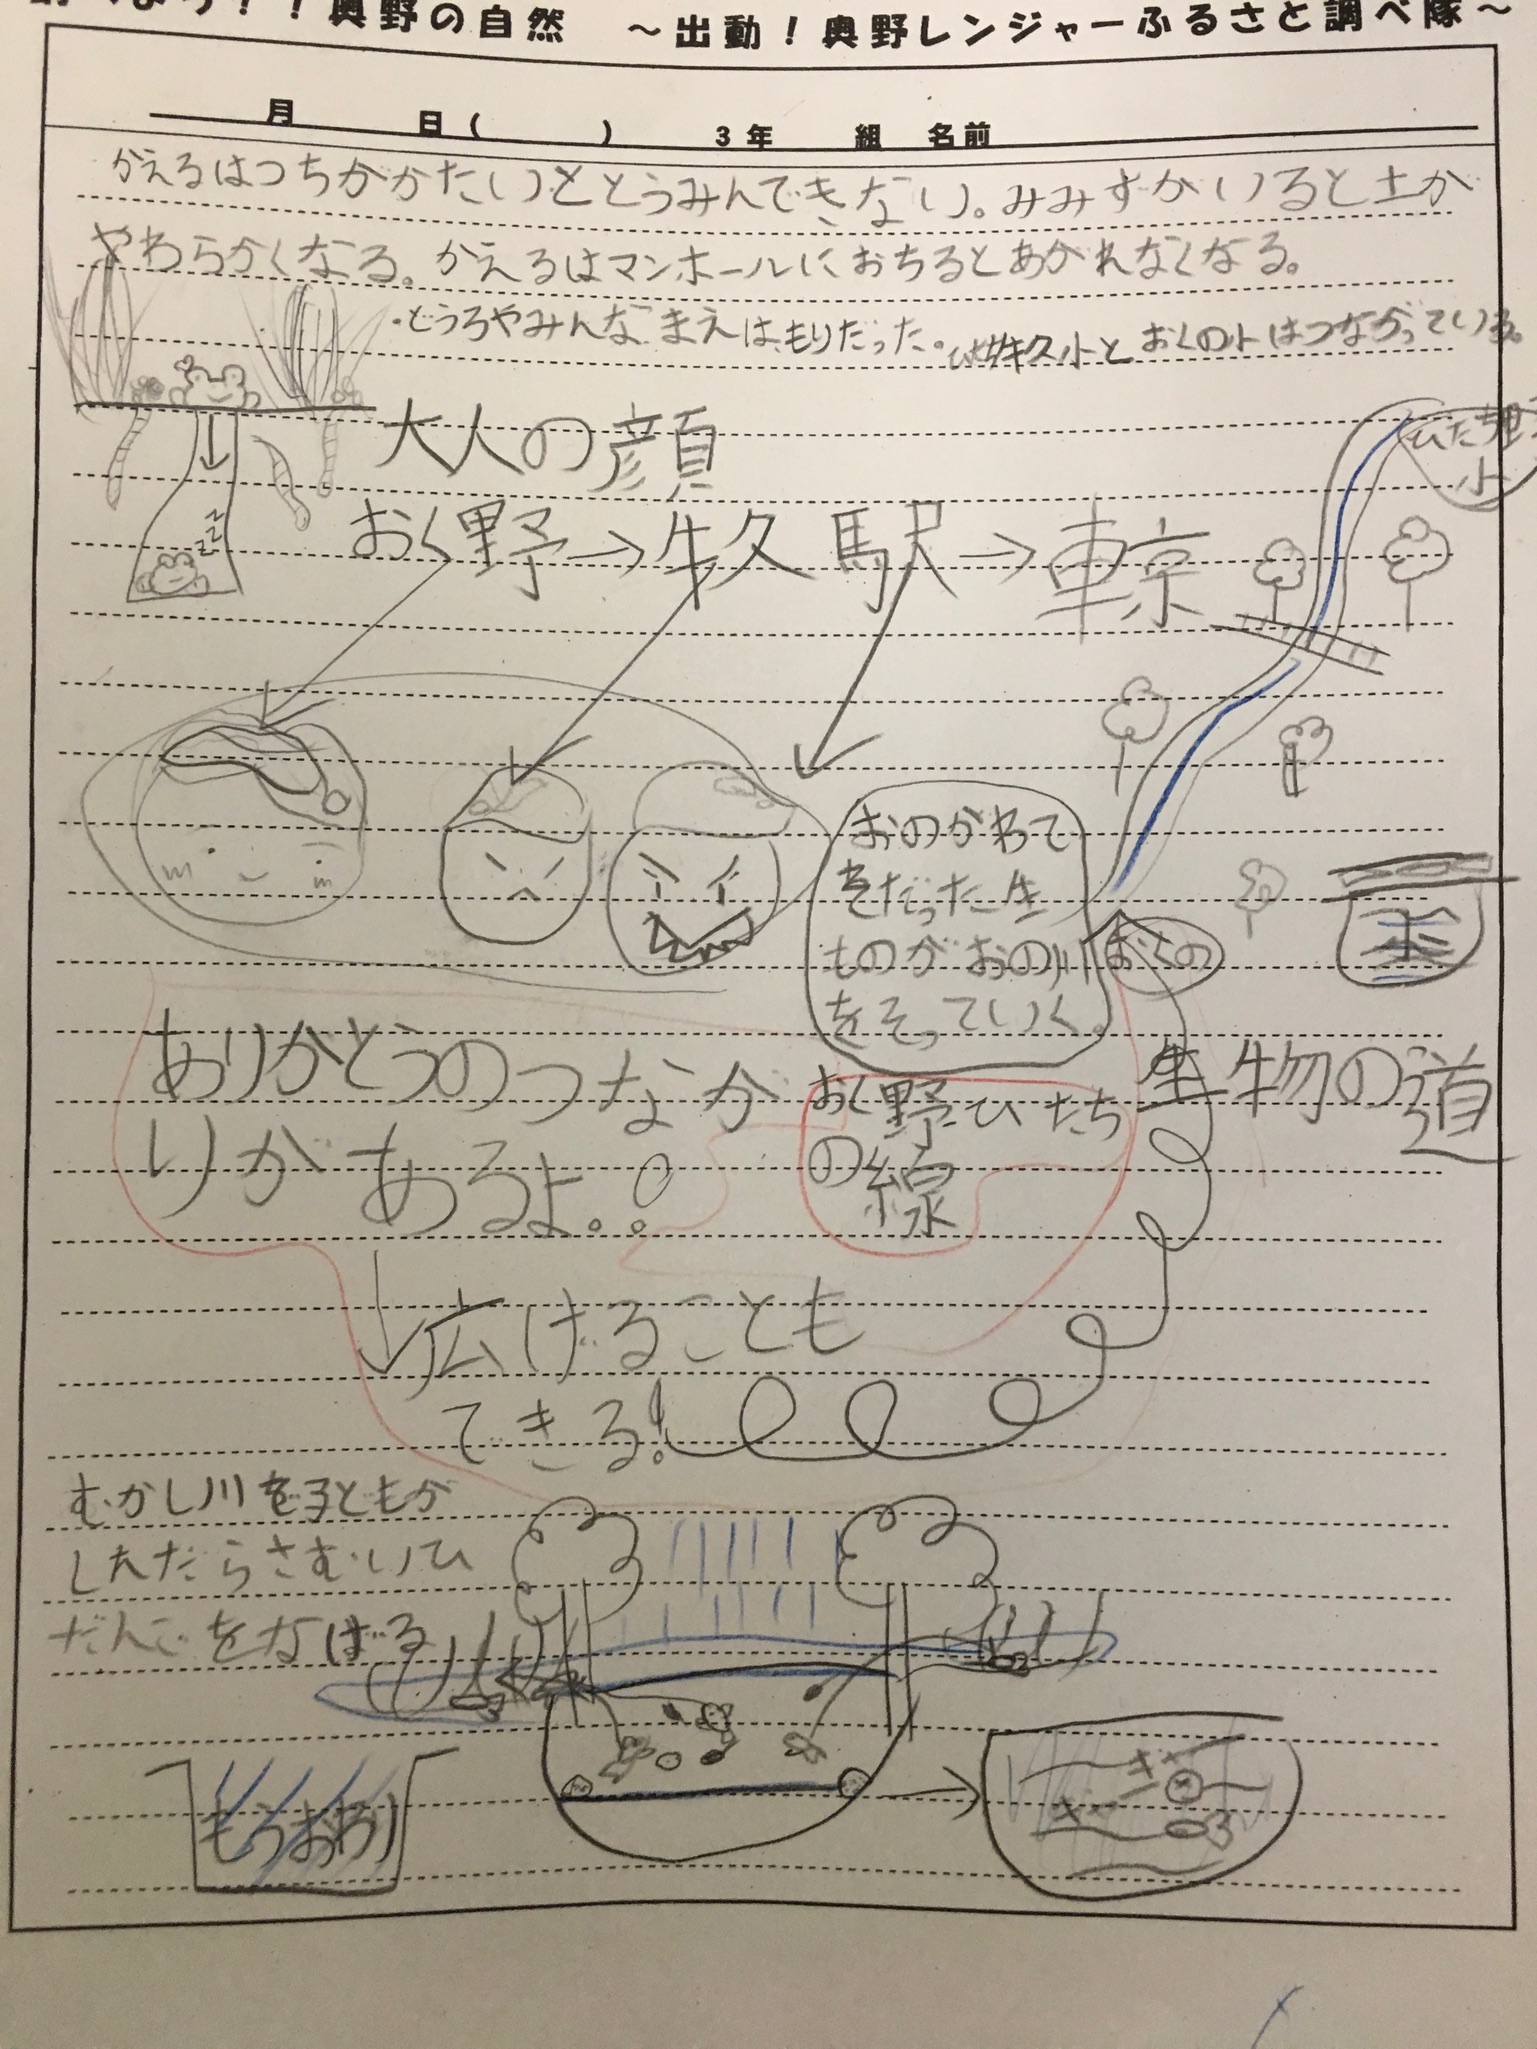 調べよう！！奥野の自然　～出動！奥野レンジャーふるさと調べ隊～
月　日（　）　3年　組　名前
かえるはつちがかたいととうみんできない。みみずがいると土が
やわらかくなる。かえるはマンホールにおちるとあがれなくなる。
・どうろやみんなまえはもりだった。
小とおくの小はつながっている。
大人の顔
おく野→牛久駅→東京
zzz
小
おのがわで
そだった生
ものがおの川
をそっていく。
おくの
水
ありがとうのつなが
りがあるよ。!
おく野ひたち
の線
生物の道
広げることも
できる!
むかし川を子どもが
しんだらさむいひ
だんごをなげる
もうおわり